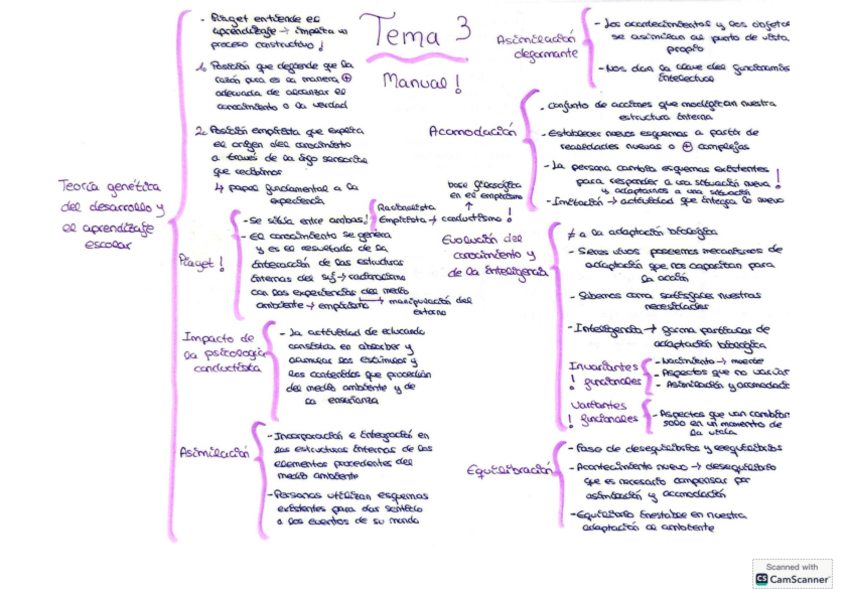 Tema 3
Manual!
Teoría genética
del desarrollo y
el aprendizaje
escolar
- Piaget entiende el
aprendizaje → implica un
proceso constructivo!
1. Posición que defiende que la
razón pura es la manera ⊕
adecuada de alcanzar el
conocimiento o la verdad
2. Posición empirista que explica
el origen del conocimiento
a través de la info sensorial
que recibimos
↳ papel fundamental a la
experiencia
Piaget!
- Se sitúa entre ambas!
Racionalista
Empirista → conductismo!
base filosófica
en el empirismo
- El conocimiento se genera
y es el resultado de la
interacción de las estructuras
internas del suj → racionalismo
con las experiencias del medio
ambiente → empirismo → manipulación del
externo
Impacto de
la psicología
conductista
- La actividad de educando
consistía en absorber y
acumular los estímulos y
los contenidos que procedían
del medio ambiente y de
la enseñanza
Asimilación
- Incorporación e integración en
las estructuras internas de los
elementos procedentes del
medio ambiente
- Personas utilizan esquemas
existentes para dar sentido
a los eventos de su mundo
Asimilación
deformante
- Los acontecimientos y los objetos
se asimilan al punto de vista
propio
- Nos dan la clave del
intelectual
Acomodación
- Conjunto de acciones que modifican nuestra
estructura interna
- Establecer nuevos esquemas a partir de
realidades nuevas o ⊕ complejas
- La persona cambia esquemas existentes
para responder a una situación nueva!
y adaptarnos a una situación
- Imitación → actividad que integra lo nuevo
Evolución del
conocimiento y
de la inteligencia
≠ a la adaptación biológica
- Seres vivos poseemos mecanismos de
adaptación que nos capacitan para
la acción
- Sabemos como satisfacer nuestras
necesidades
- Inteligencia → forma particular de
adaptación biológica
Invariantes
! funcionales
- Nacimiento → muerte
- Aspectos que no varían
- Asimilación y acomodación
Variantes
! funcionales
- Aspectos que van cambiando
solo en un momento de
la vida
Equilibración
- Fase de desequilibrios y reequilibrios
- Acontecimiento nuevo → desequilibrio
que es necesario compensar por
asimilación y acomodación
- Equilibrio inestable en nuestra
adaptación al ambiente
Scanned with
CS CamScanner